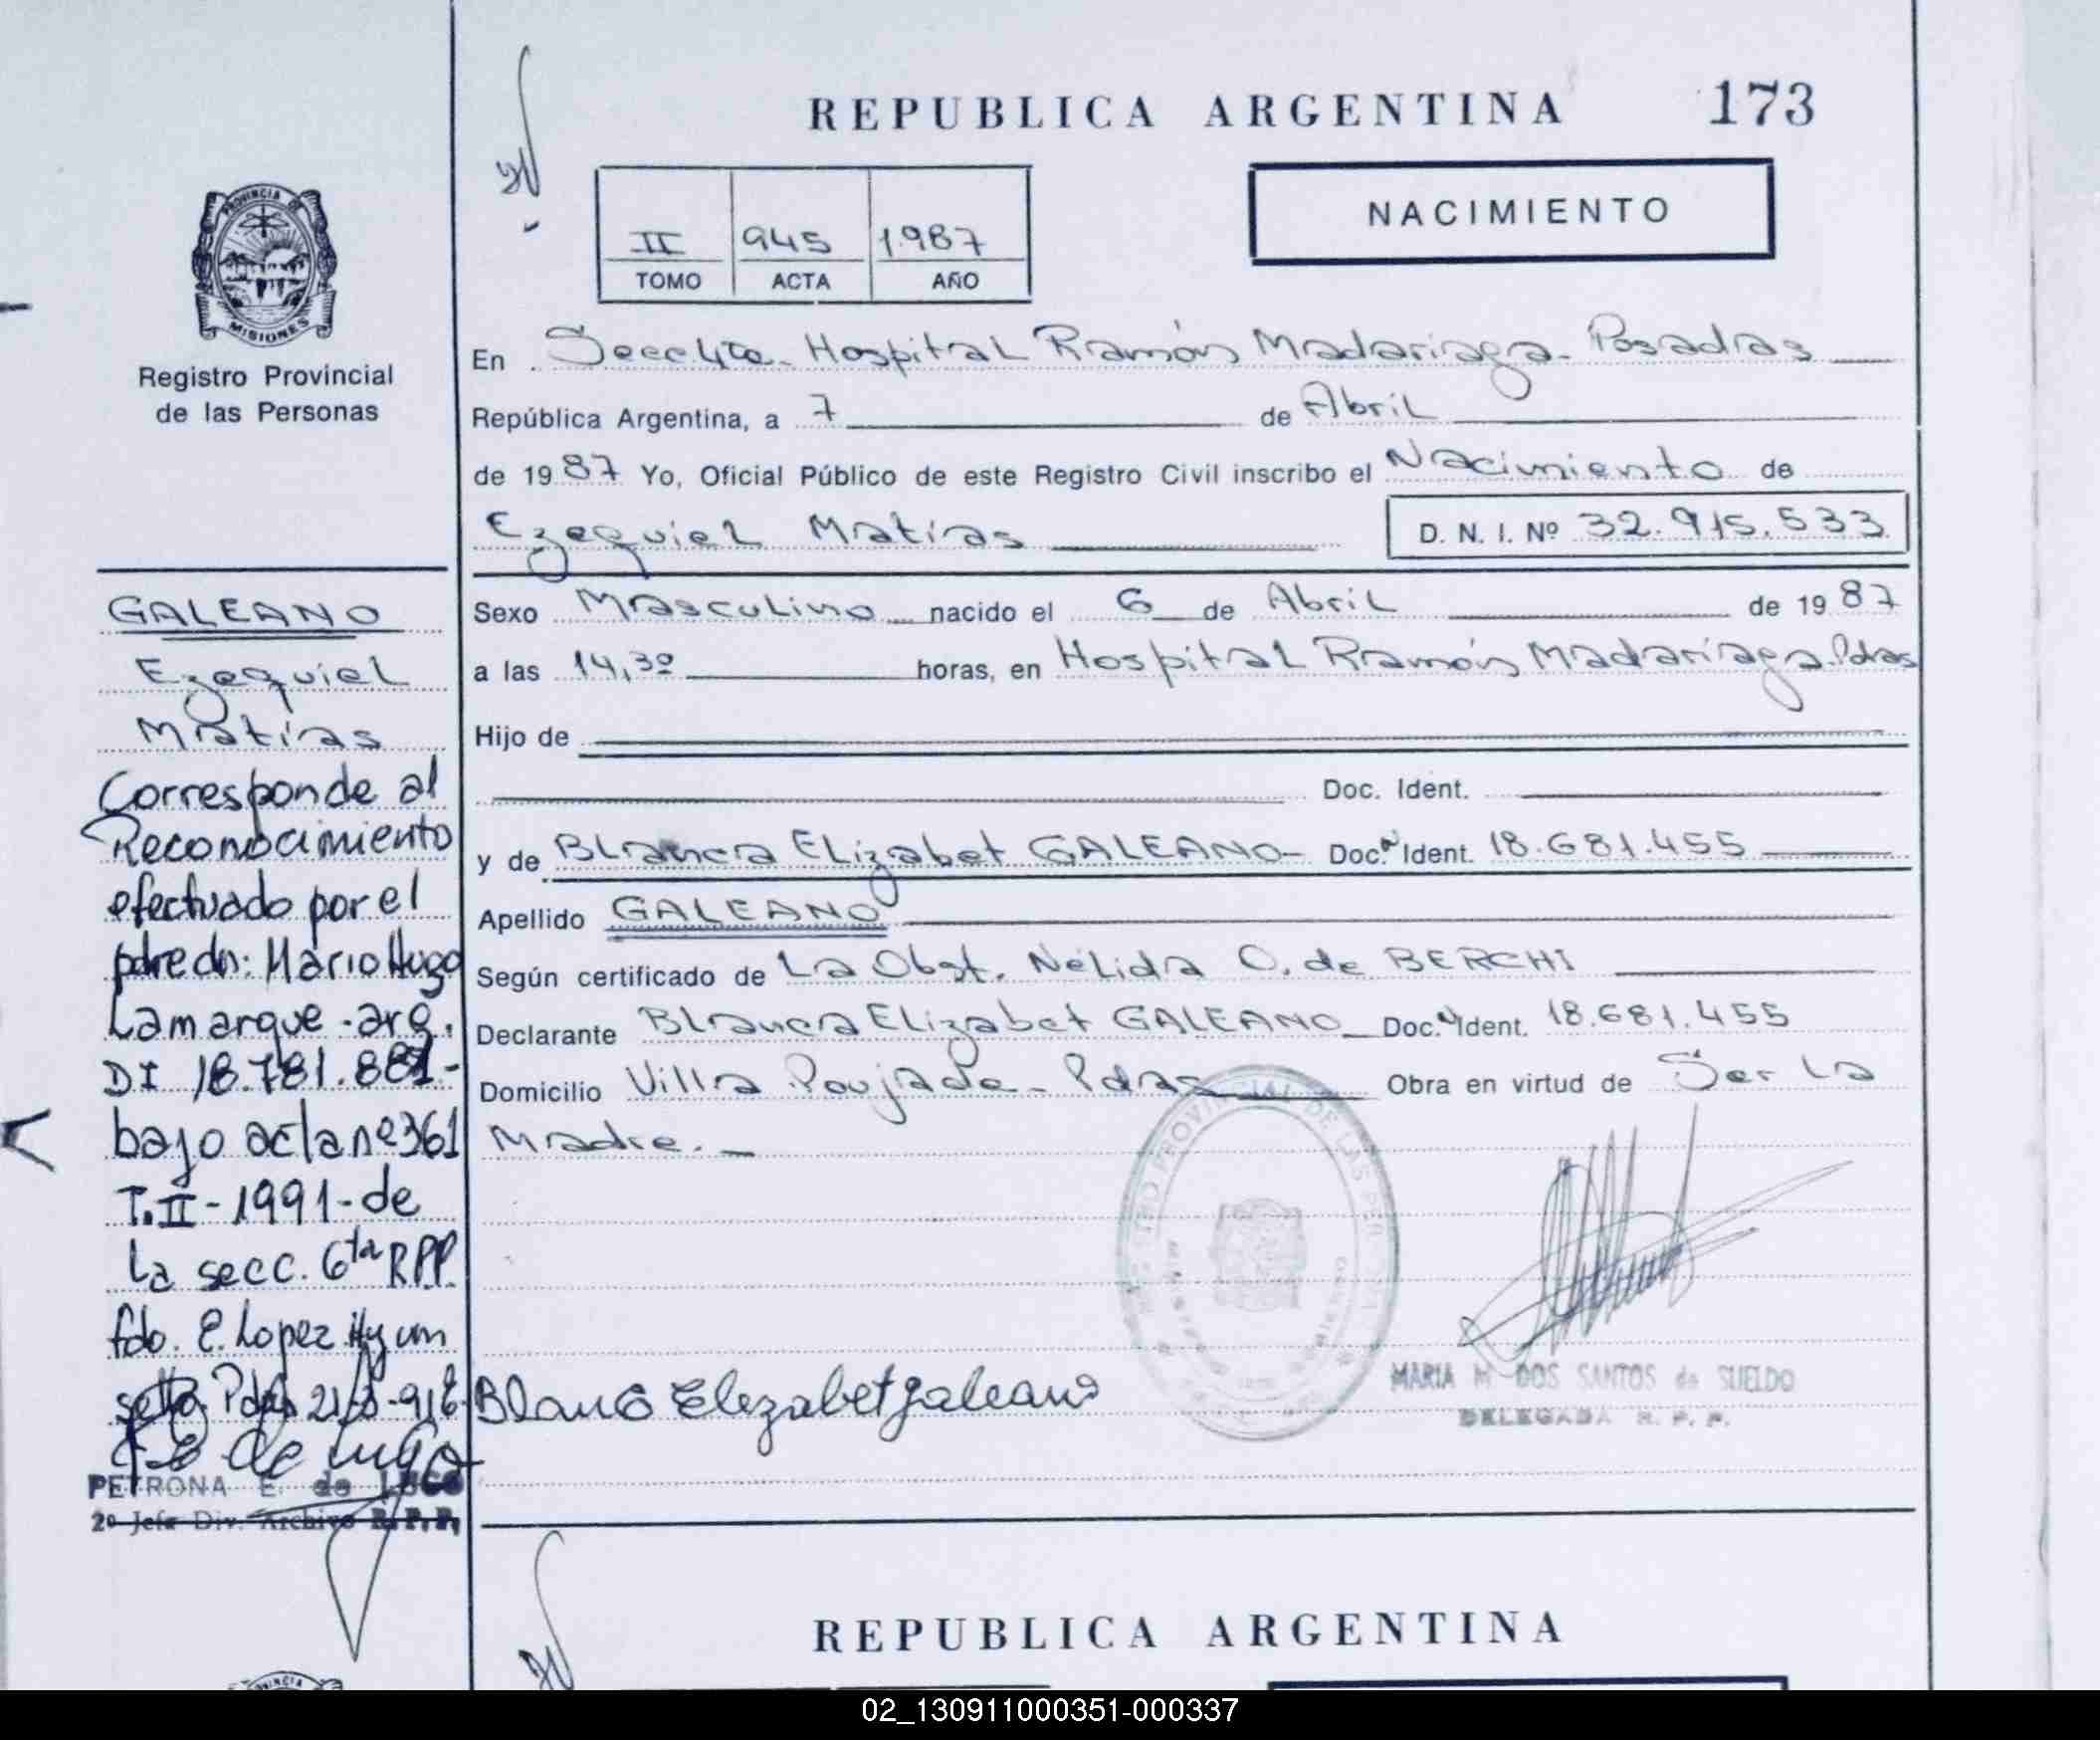 REPUBLICA ARGENTINA 173
NACIMIENTO
II 945 1987
TOMO ACTA AÑO
PROVINCIA DE
MISIONES
Registro Provincial
de las Personas
En Secc 4ta - Hospital Ramón Madariaga - Posadas
República Argentina, a 7 de Abril
de 1987 Yo, Oficial Público de este Registro Civil inscribo el Nacimiento de
Ezequiel Matías D. N. I. Nº 32.915.533
Sexo Masculino nacido el 6 de Abril de 1987
a las 14,30 horas, en Hospital Ramón Madariaga. Pdas
Hijo de
Doc. Ident.
y de Blanca Elizabet GALEANO - Doc. Ident. 18.681.455
Apellido GALEANO
Según certificado de La Obst. Nélida O. de BERCHI
Declarante Blanca Elizabet GALEANO Doc. Ident. 18.681.455
Domicilio Villa Poujade - Pdas Obra en virtud de Ser La
Madre. -
Blanca Elizabet Galeano
MARIA M DOS SANTOS de SUELDO
DELEGADA R. P. P.
GALEANO
Ezequiel
Matías
Corresponde al
Reconocimiento
efectuado por el
pdre dn: Mario Hugo
Lamarque - arg.
DI 18.781.881-
bajo acta nº 361
T. II - 1991 - de
La secc. 6ta RPP.
fdo. E. Lopez Hy un
sello Pdas
PETRONA E. de LUGO
2º Jefe Div. Archivo R. P. P.
REPUBLICA ARGENTINA
02_130911000351-000337